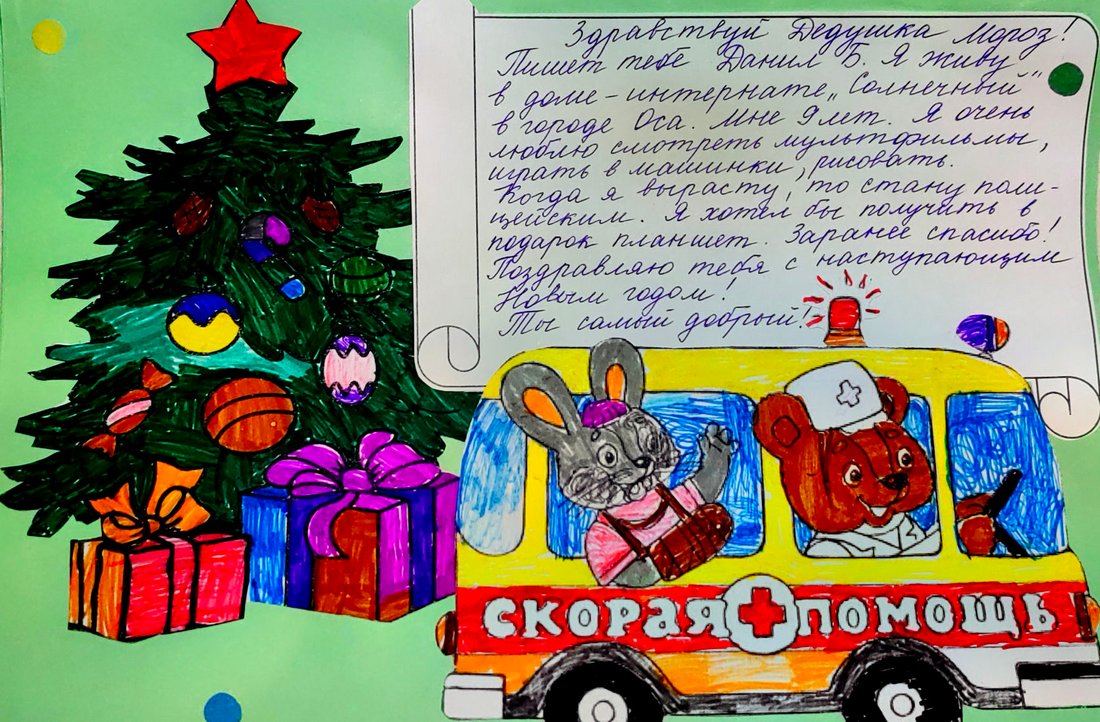 Здравствуй Дедушка Мороз!
Пишет тебе Данил Б. Я живу
в доме-интернате „Солнечный"
в городе Оса. Мне 9 лет. Я очень
люблю смотреть мультфильмы,
играть в машинки, рисовать.
Когда я вырасту, то стану поли-
цейским. Я хотел бы получить в
подарок планшет. Заранее спасибо!
Поздравляю тебя с наступающим
Новым годом!
Ты самый добрый!
СКОРАЯ ПОМОЩЬ